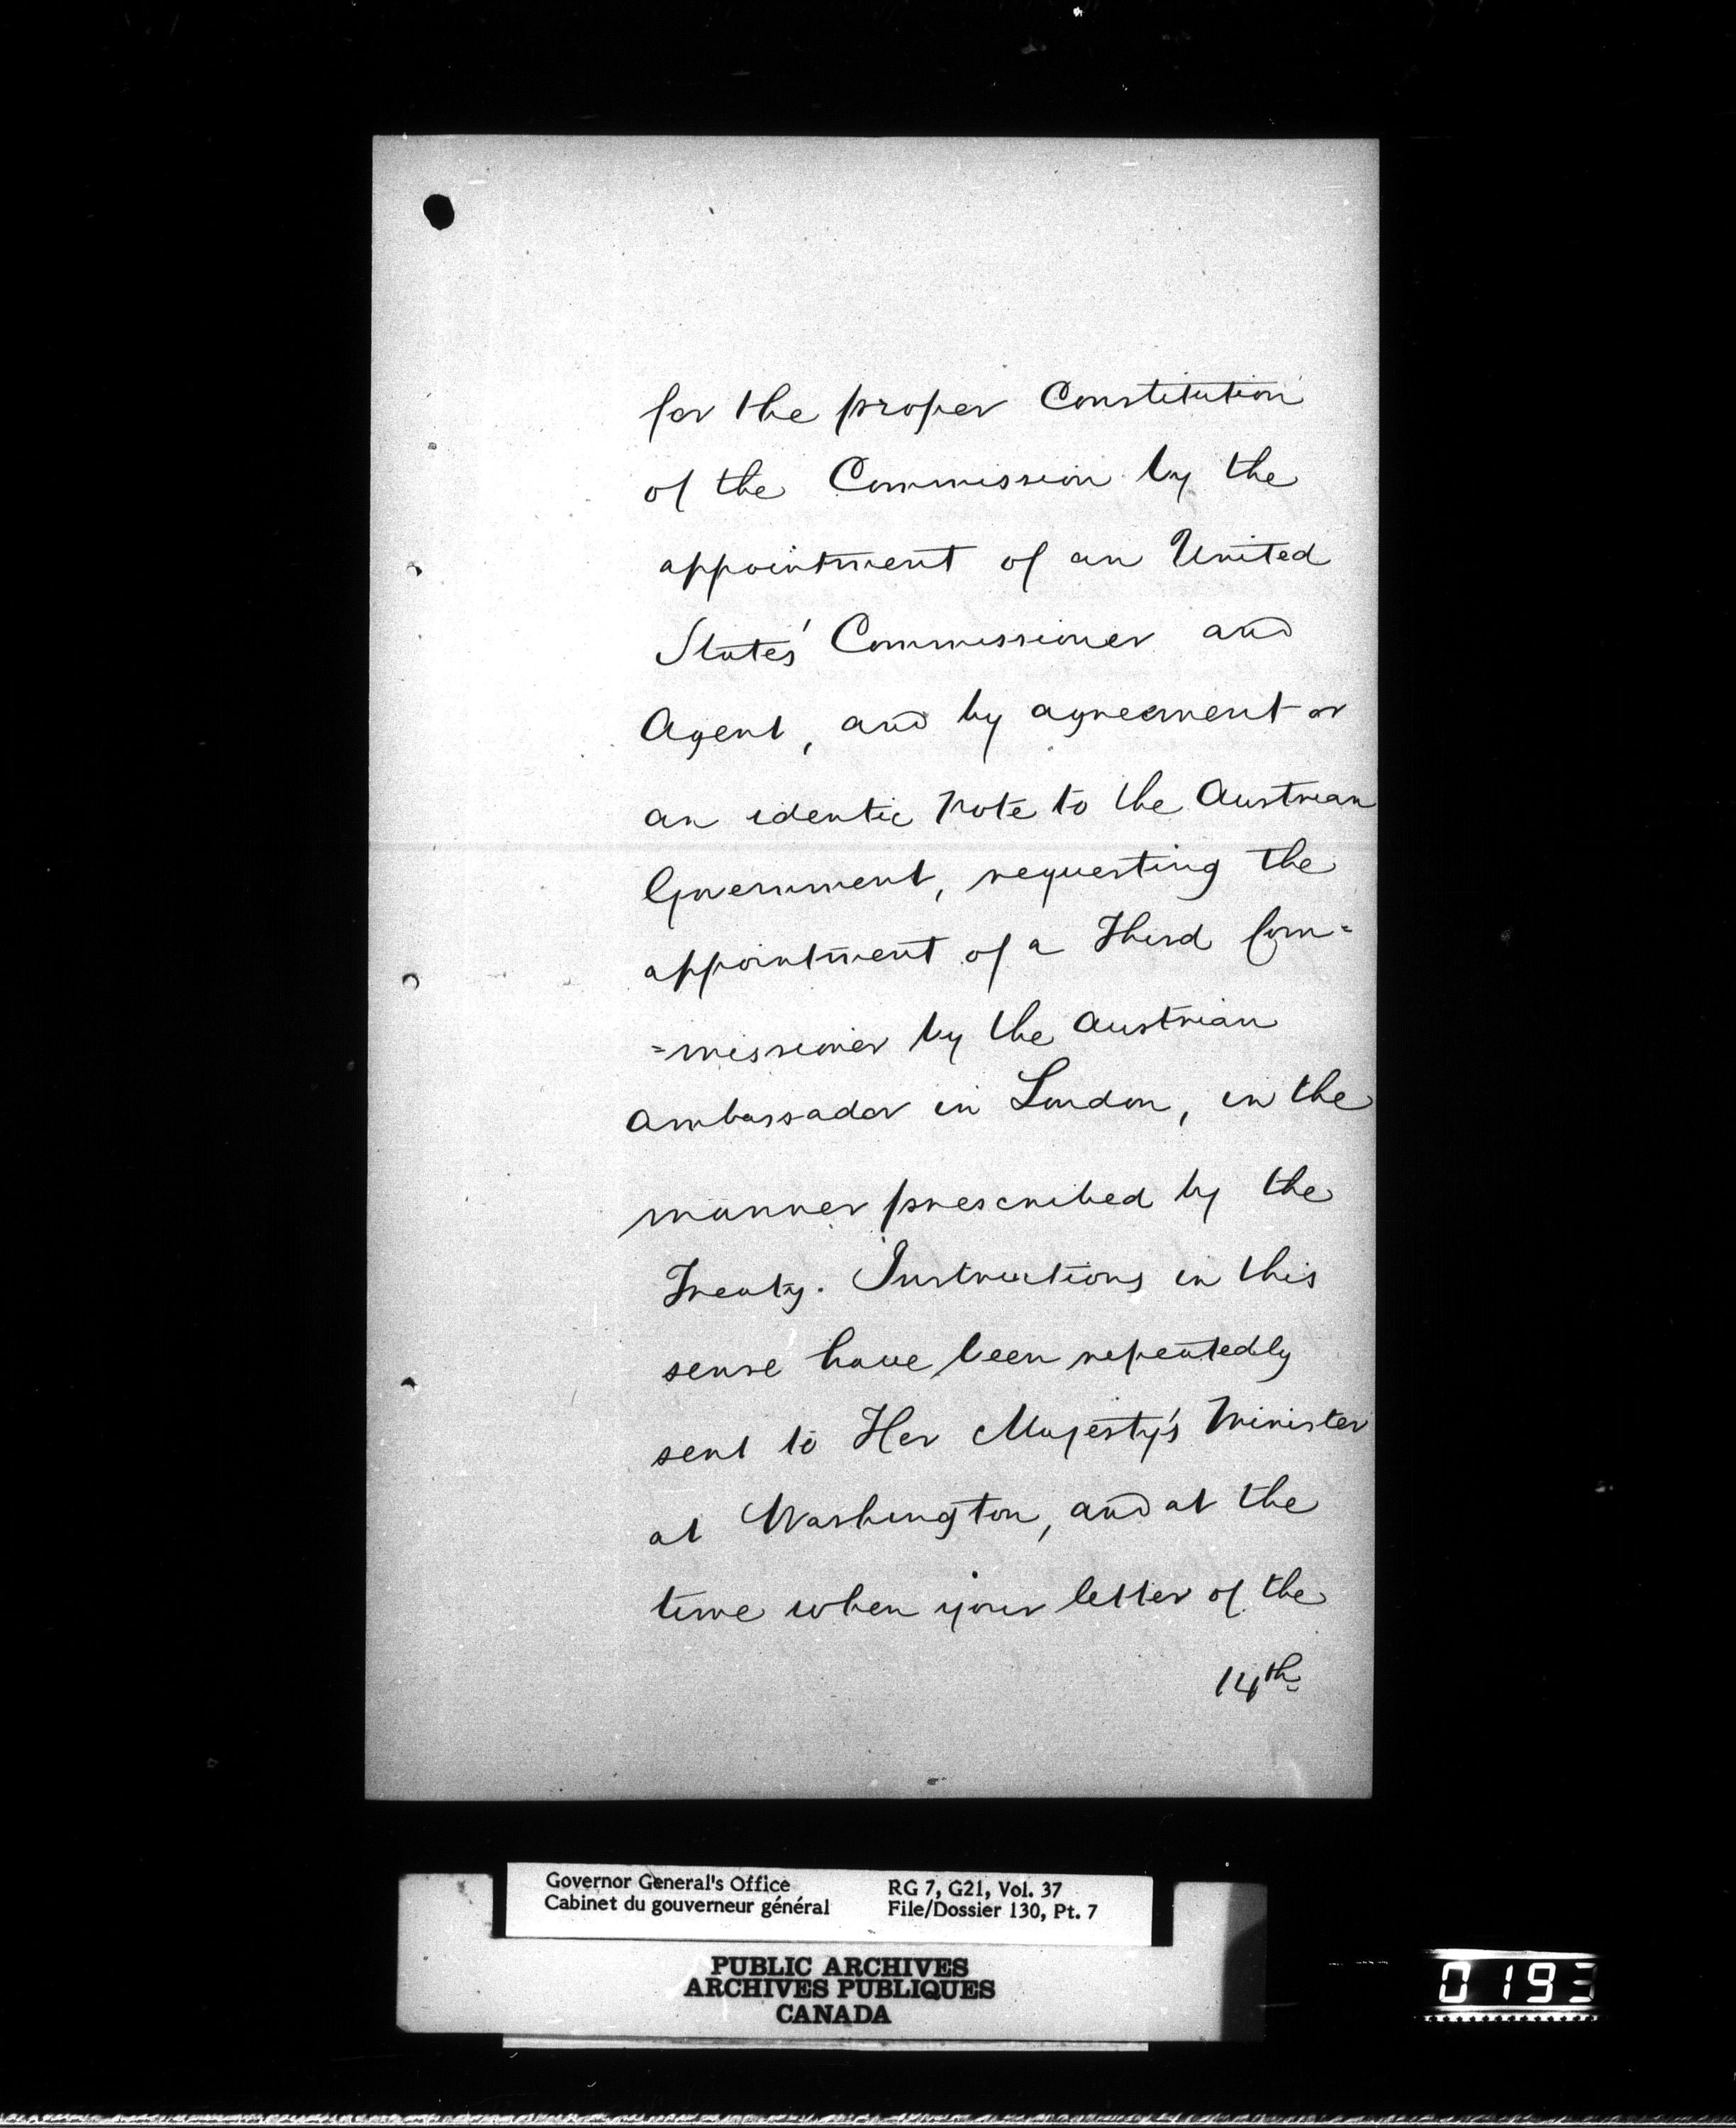 for the proper Constitution
of the Commission by the
appointment of an United
States' Commissioner and
Agent, and by agreement or
an identic Note to the Austrian
Government, requesting the
appointment of a Third Com=
=missioner by the Austrian
Ambassador in London, in the
manner prescribed by the
Treaty. Instructions in this
sense have been repeatedly
sent to Her Majesty's Minister
at Washington, and at the
time when your letter of the
14th
Governor General's Office
Cabinet du gouverneur général
RG 7, G21, Vol. 37
File/Dossier 130, Pt. 7
PUBLIC ARCHIVES
ARCHIVES PUBLIQUES
CANADA
0193